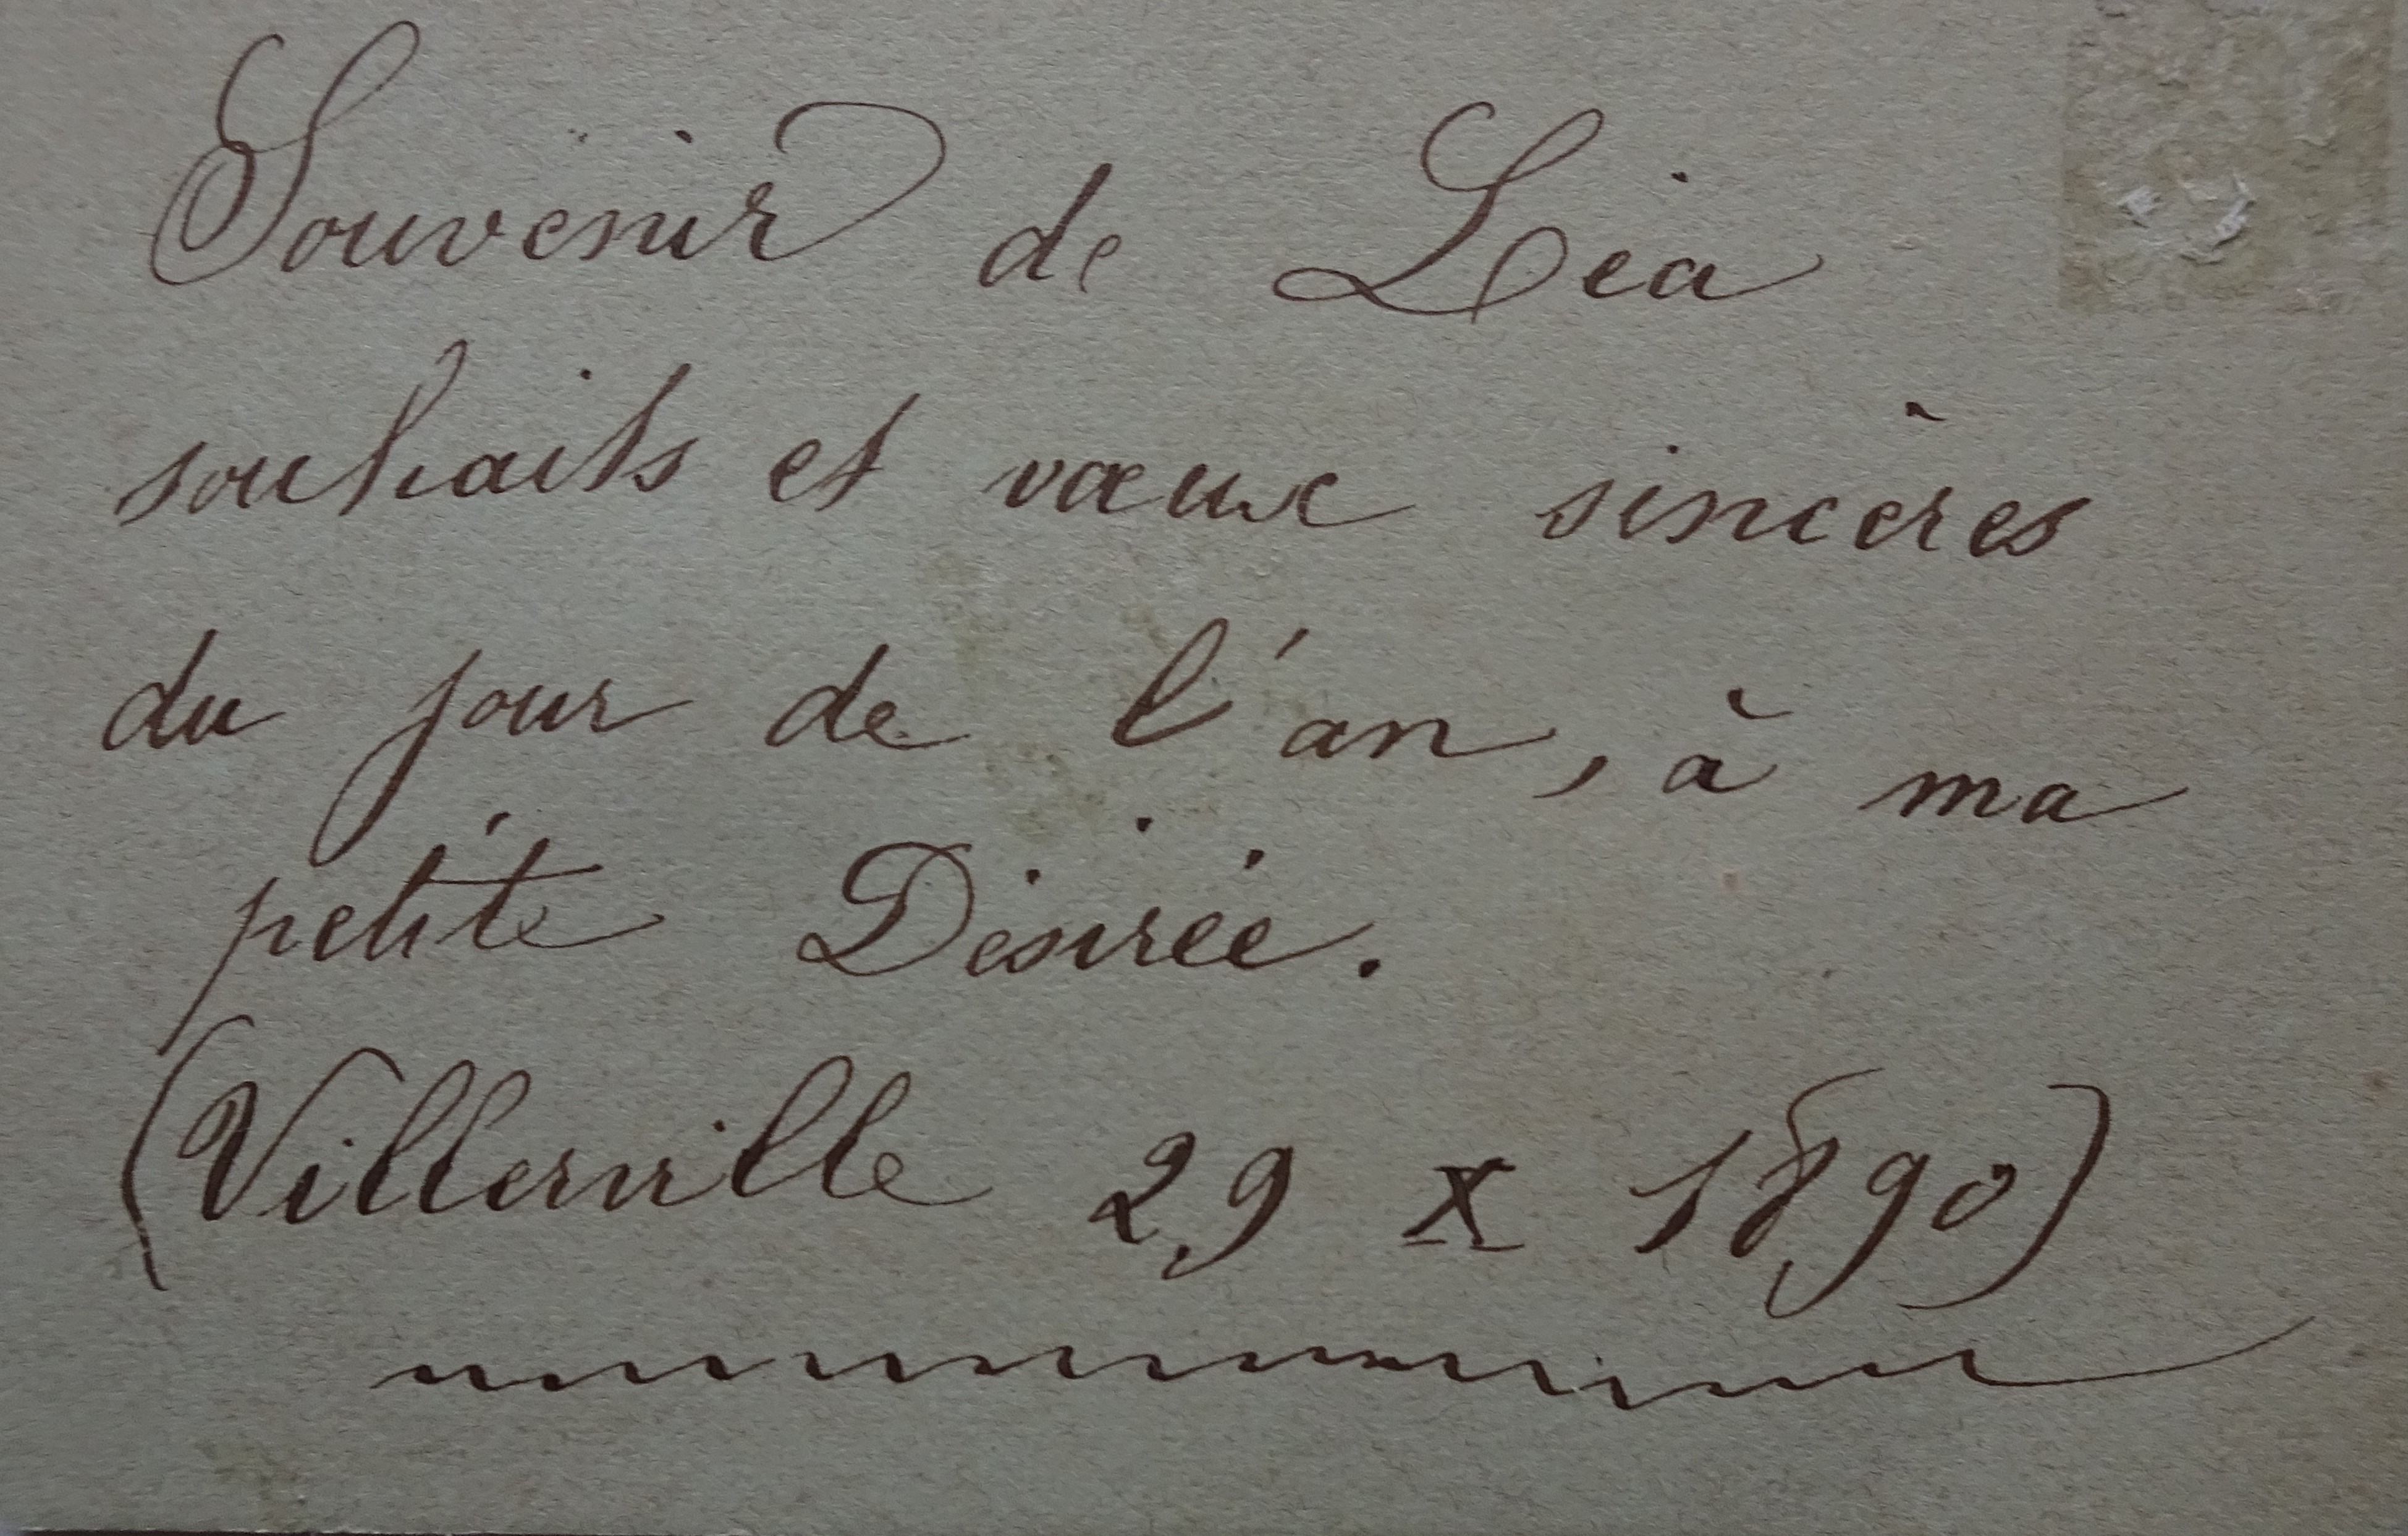 Souvenir de Léa
souhaits et vœux sincères
du jour de l'an, à ma
petite Désirée.
(Villerville 29 X 1890)